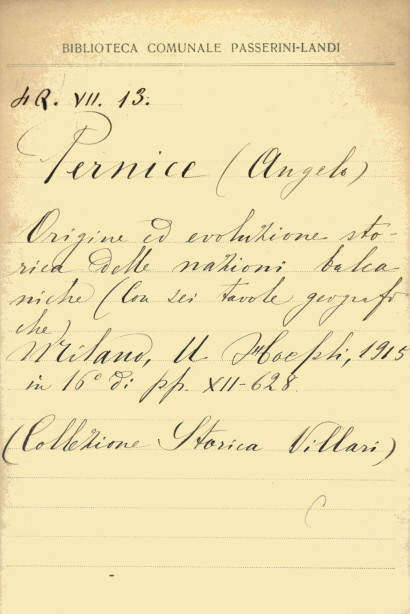 BIBLIOTECA COMUNALE PASSERINI-LANDI
4Q. VII. 13.
Pernice (Angelo)
Origine ed evoluzione sto-
rica delle nazioni balca
niche (Con sei tavole geografi
che)
Milano, U. Hoepli, 1915
in 16° di pp. XII-628.
(Collezione Storica Villari)